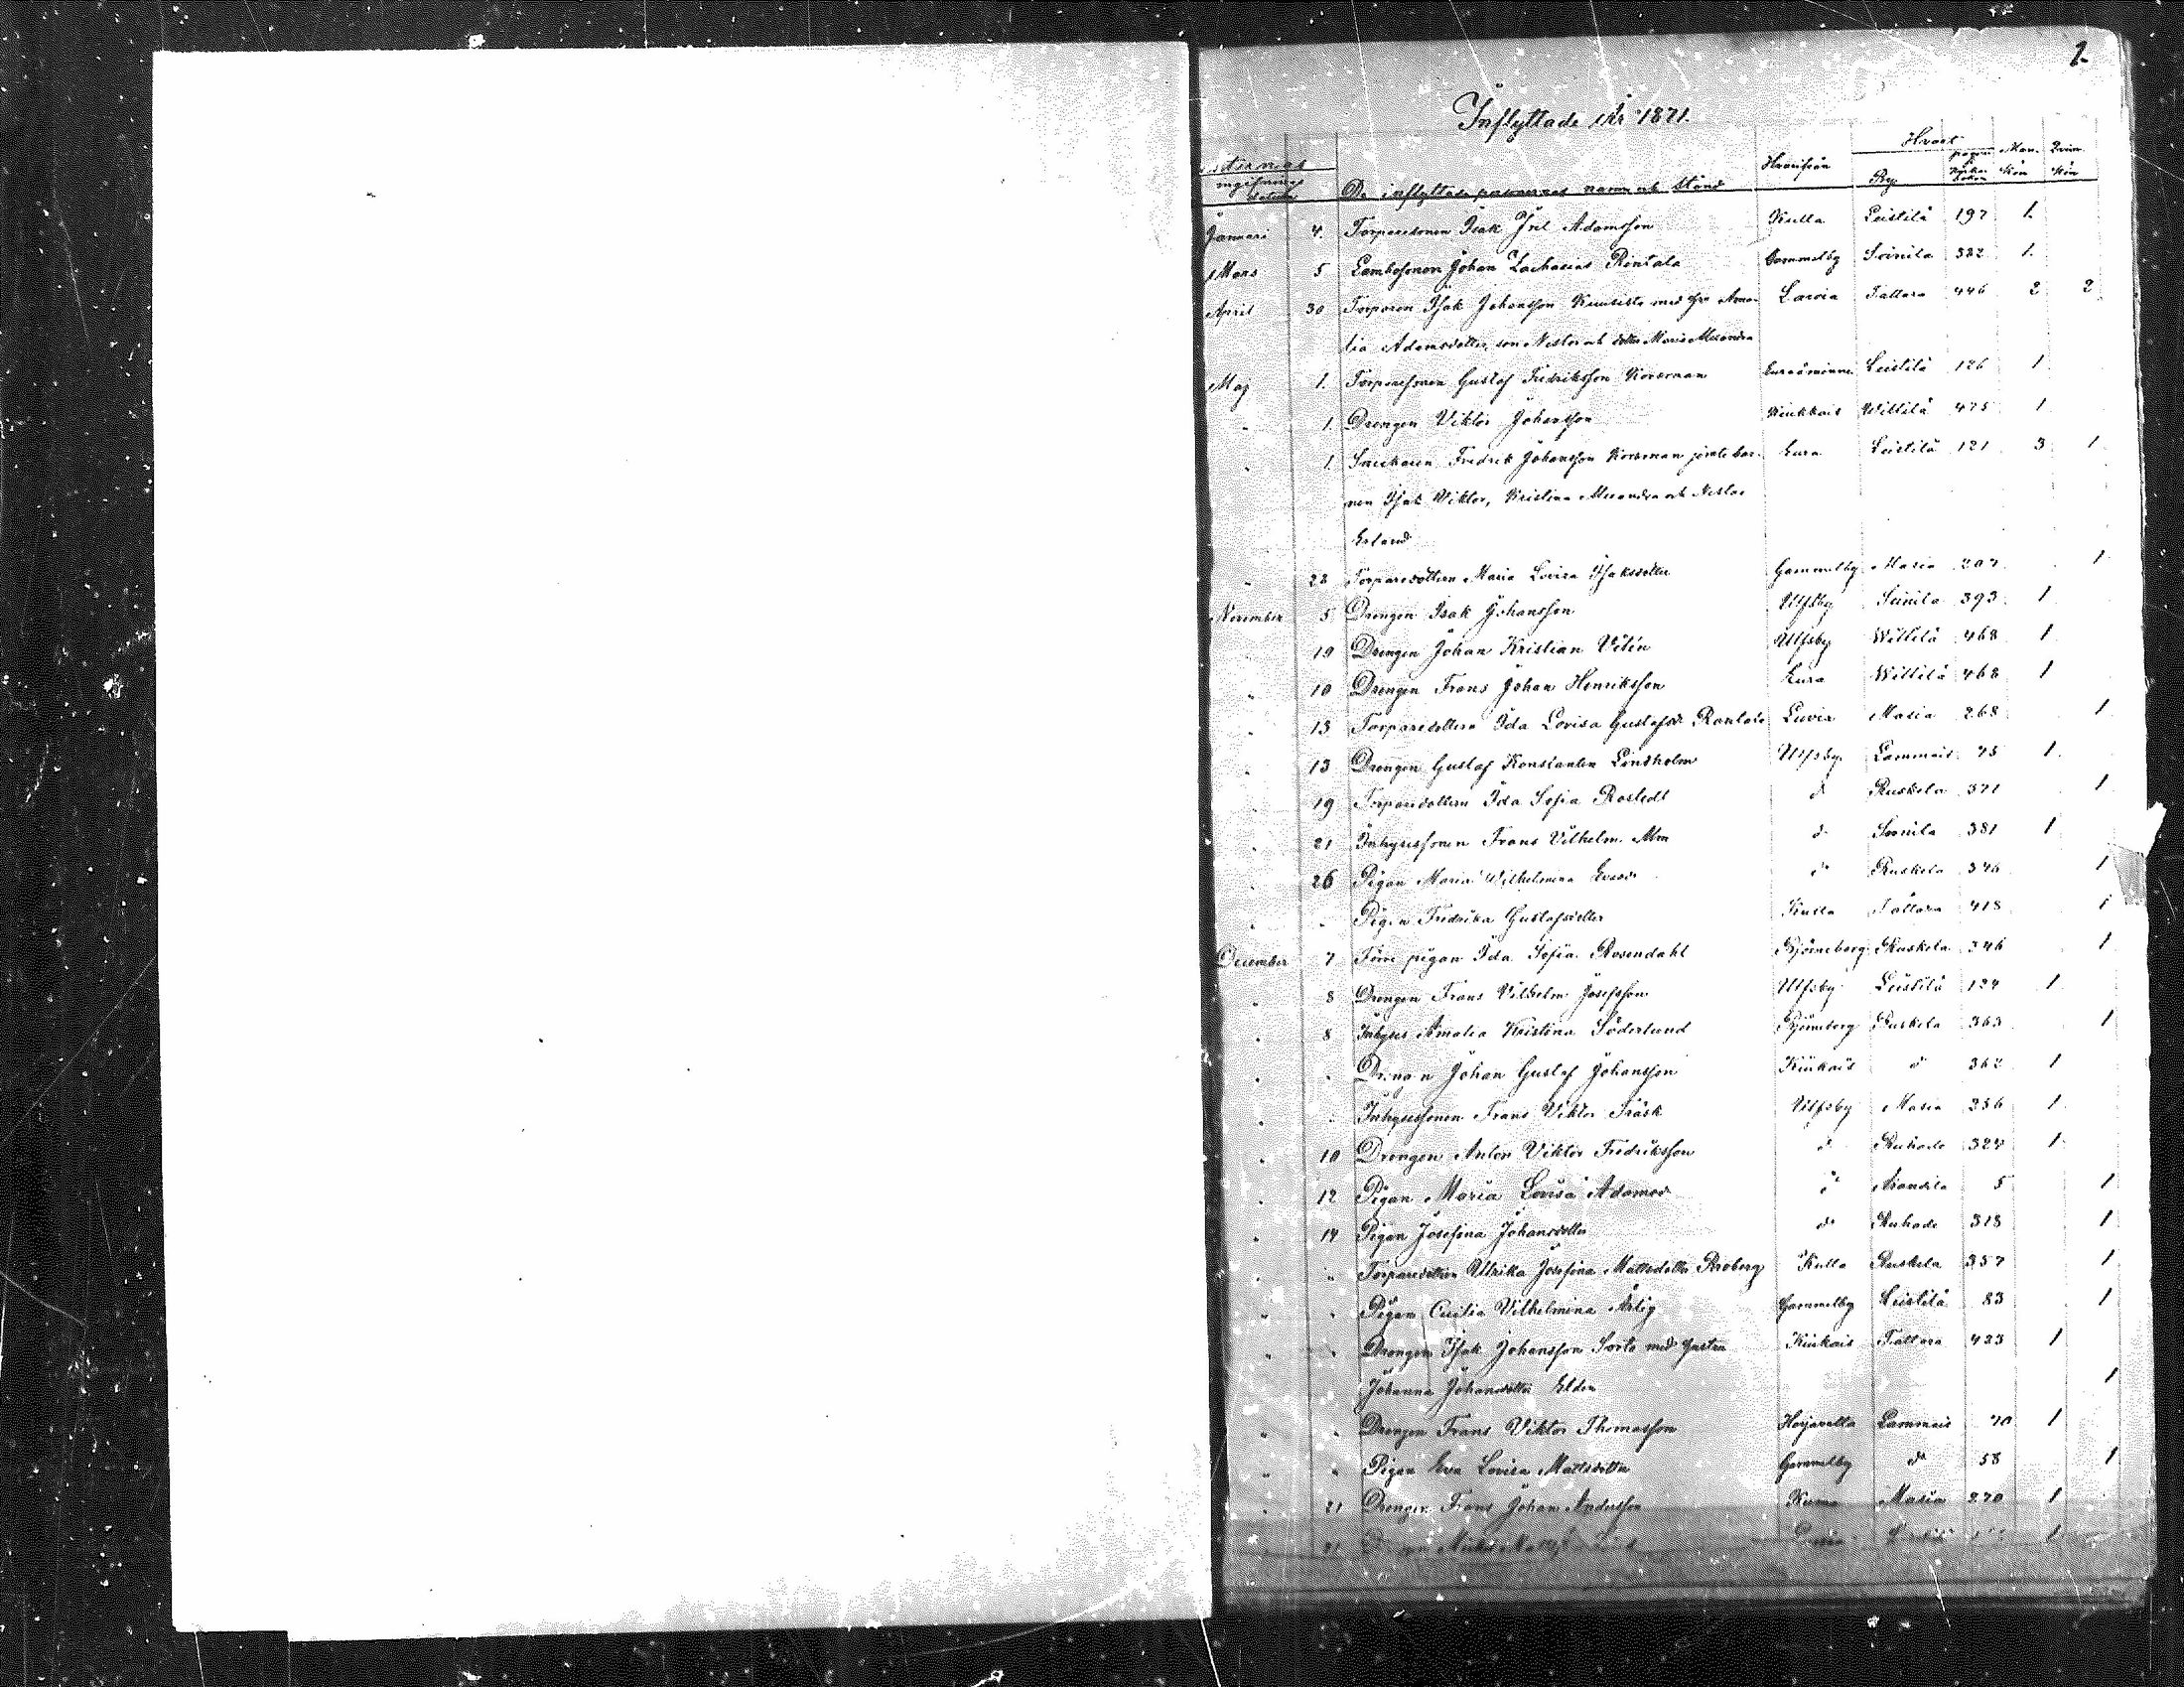 1.
Inflyttade År 1871.
Hvart
Hvarifrån By pagin i Kyrkoboken Man kön Qvin kön
De inflyttade personernas namn och stånd
Januari 4. Torparesonen Isak Joel Adamsson Kulla Leistilä 197 1.
Mars 5 Johan Zacharias Rintala Gammelby Soinila 382 1.
April 30 Torparen Isak Johansson Kuusisto med hu Ama- Lavia Tattara 446 2 2
lia Adamsdotter, son Nestor och dotter Maria Alexandra
Maj 1. Torparesonen Gustaf Fredriksson Korsman Euraåminne Leistilä 126 1
" 1. Drengen Viktor Johansson Kiukkais Willilä 475 1
" 1. Fredrik Johansson Korsman jemte bar- Eura Leistilä 121 3 1
nen Isak Viktor, Kristina Alexandra och Nestor
Erland
" 28 Torparedottern Maria Lovisa Isaksdotter Gammelby Masia 207 1
November 5 Drengen Isak Johansson Ulfsby Soinila 393 1
" 10 Drengen Johan Kristian Vilén Ulfsby Willilä 468 1
" 10 Drengen Frans Johan Henriksson Eura Willilä 468 1
" 13 Torparedottern Ida Lovisa Gustafsdr Rantala Luvia Masia 268 1
" 13 Drengen Gustaf Konstantin Lindholm Ulfsby Lammais 75 1
" 19 Torparedottern Ida Sofia Rostedt d:o Ruskela 371 1
" 21 Inhysessonen Frans Vilhelm Alm d:o Soinila 381 1
" 26 Pigan Maria Wilhelmina d:o Ruskela 346 1
" " Pigan Fredrika Gustafsdotter Kulla Tattara 418 1
December 7 Förre pigan Ida Sofia Rosendahl Björneborg Ruskela 346 1
" 8 Drengen Frans Vilhelm Josefsson Ulfsby Leistilä 124 1
" 8 Inhyses Amalia Kristina Söderlund Björneborg Ruskela 363 1
" " Drengen Johan Gustaf Johansson Kiukais d:o 362 1
" " Inhysessonen Frans Viktor Träsk Ulfsby Masia 256 1
" 10 Drengen Anton Viktor Fredriksson d:o Ruhade 324 1
" 12 Pigan Maria Lovisa Adamsd. d:o Arandila 5 1
" 14 Pigan Josefina Johansdotter d:o Ruhade 318 1
" " Torparedottern Ulrika Josefina Mattsdotter Broberg Kulla Ruskela 357 1
" " Pigan Cecilia Vilhelmina Ärlig Gammelby Leistilä 83 1
" " Drengen Isak Johansson Sorto med hustru Kiukais Tattara 423 1
Johanna Johansdotter Elden 1
" " Drengen Frans Viktor Thomasson Harjavalta Lammais 70 1
" " Pigan Eva Lovisa Mattsdotter Gammelby d:o 58 1
" 21 Drengen Frans Johan Andersson Kumo Masia 270 1
" 21 1